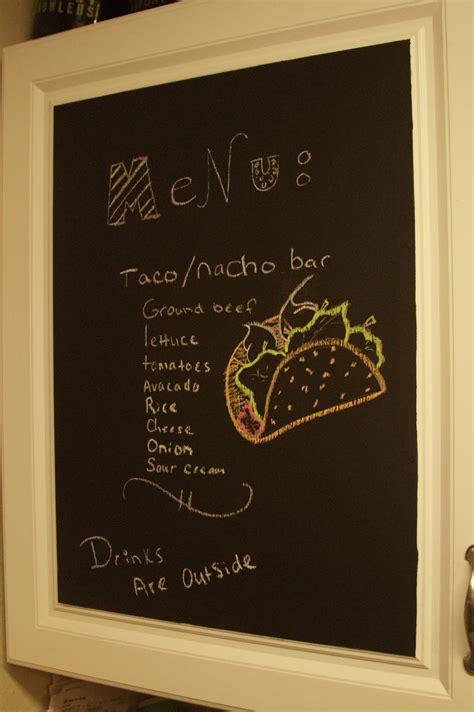 MeNu:
Taco/nacho bar
Ground beef
lettuce
tomatoes
Avacado
Rice
Cheese
Onion
Sour cream
Drinks
Are OutSide